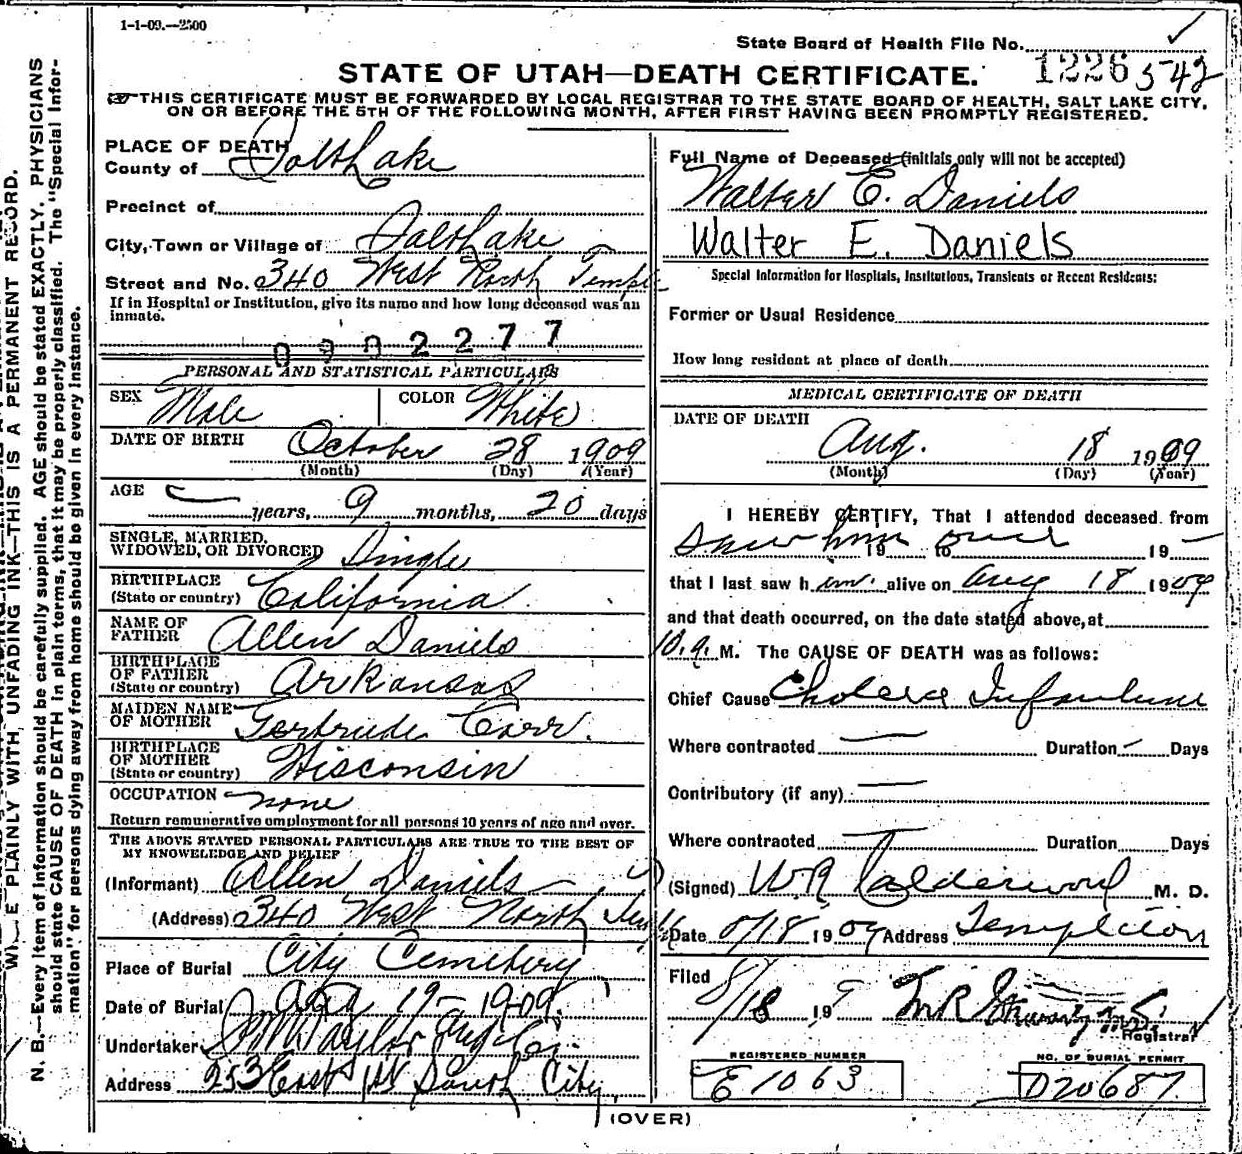 1-1-09.—2500
State Board of Health File No.
1226 542
STATE OF UTAH—DEATH CERTIFICATE.
THIS CERTIFICATE MUST BE FORWARDED BY LOCAL REGISTRAR TO THE STATE BOARD OF HEALTH, SALT LAKE CITY,
ON OR BEFORE THE 5TH OF THE FOLLOWING MONTH, AFTER FIRST HAVING BEEN PROMPTLY REGISTERED.
PLACE OF DEATH
County of Salt Lake
Precinct of
City, Town or Village of Salt Lake
Street and No. 340 West North Temple
If in Hospital or Institution, give its name and how long deceased was an
inmate.
0 0 0 2 2 7 7
PERSONAL AND STATISTICAL PARTICULARS
SEX Male COLOR White
DATE OF BIRTH October 28 1909
(Month) (Day) (Year)
AGE years, 9 months, 20 days
SINGLE, MARRIED,
WIDOWED, OR DIVORCED Single
BIRTHPLACE
(State or country) California
NAME OF
FATHER Allen Daniels
BIRTHPLACE
OF FATHER
(State or country) Arkansas
MAIDEN NAME
OF MOTHER Gertrude Carr.
BIRTHPLACE
OF MOTHER
(State or country) Wisconsin
OCCUPATION none
Return remunerative employment for all persons 10 years of age and over.
THE ABOVE STATED PERSONAL PARTICULARS ARE TRUE TO THE BEST OF
MY KNOWLEDGE AND BELIEF
(Informant) Allen Daniels
(Address) 340 West North
Place of Burial City Cemetery
Date of Burial Aug 19—1909.
Undertaker Taylor
Address 253 East 1st South City
Full Name of Deceased (initials only will not be accepted)
Walter E. Daniels
Walter E. Daniels
Special Information for Hospitals, Institutions, Transients or Recent Residents:
Former or Usual Residence
How long resident at place of death
MEDICAL CERTIFICATE OF DEATH
DATE OF DEATH
Aug. 18 1909
(Month) (Day) (Year)
I HEREBY CERTIFY, That I attended deceased from
Saw him 19 to once 19 —
that I last saw h im. alive on Aug 18 1909
and that death occurred, on the date stated above, at
10.a. M. The CAUSE OF DEATH was as follows:
Chief Cause Cholera Infantum
Where contracted — Duration — Days
Contributory (if any) —
Where contracted — Duration Days
(Signed) W R Calderwood M. D.
Date 8/18 1909 Address Templeton
Filed
8/18 19 9
Registrar
REGISTERED NUMBER
E 1063
NO. OF BURIAL PERMIT
D20687.
(OVER)
WRITE PLAINLY WITH UNFADING INK—THIS IS A PERMANENT RECORD.
N. B.—Every item of information should be carefully supplied. AGE should be stated EXACTLY. PHYSICIANS
should state CAUSE OF DEATH in plain terms, that it may be properly classified. The "Special Infor-
mation" for persons dying away from home should be given in every instance.